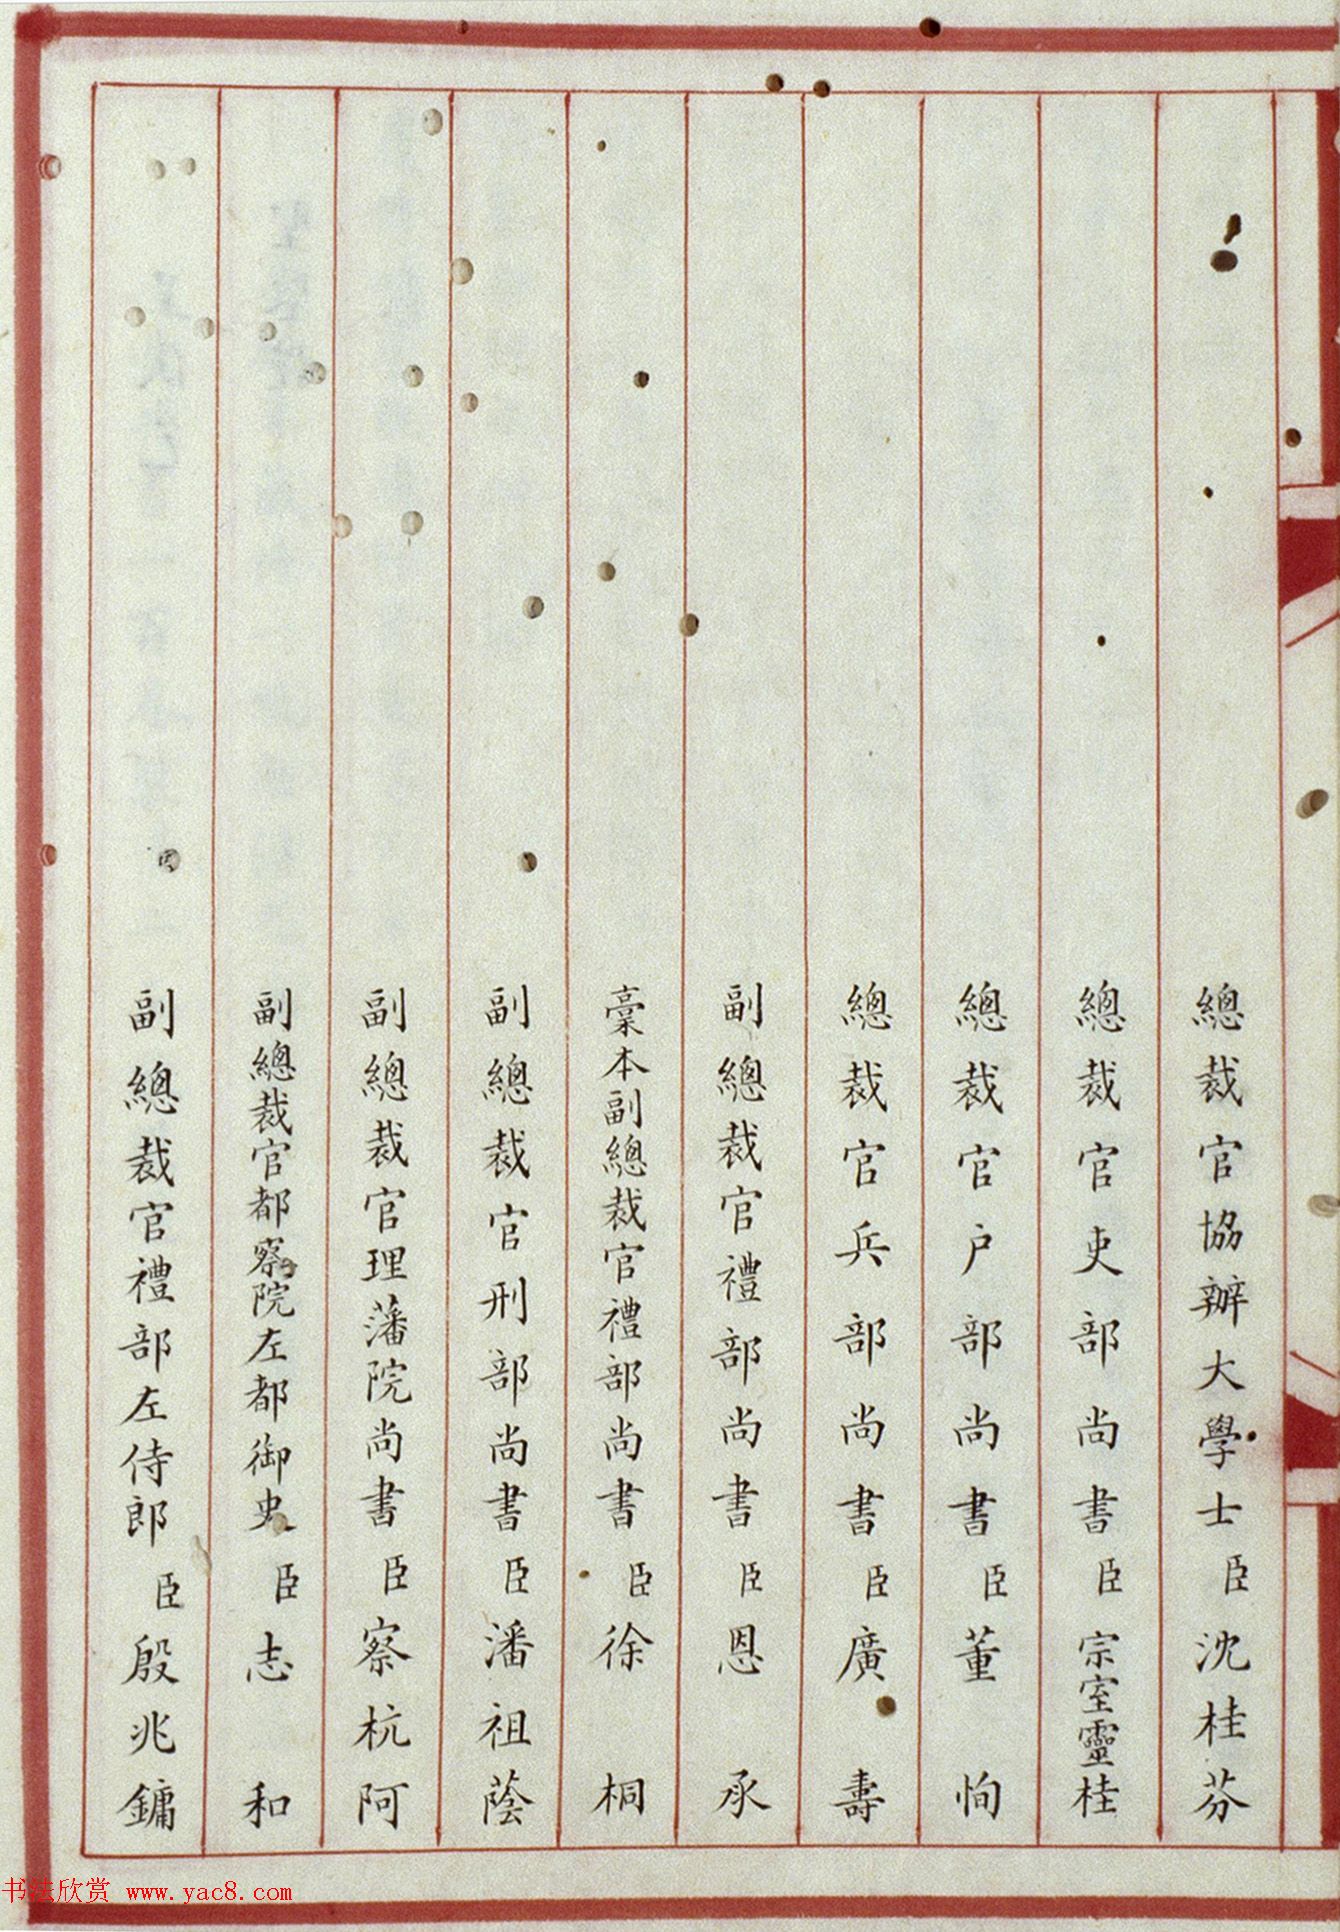 總裁官協辦大學士臣沈桂芬
總裁官吏部尚書臣宗室靈桂
總裁官户部尚書臣董恂
總裁官兵部尚書臣廣壽
副總裁官禮部尚書臣恩承
稾本副總裁官禮部尚書臣徐桐
副總裁官刑部尚書臣潘祖蔭
副總裁官理藩院尚書臣察杭阿
副總裁官都察院左都御史臣志和
副總裁官禮部左侍郎臣殷兆鏞
书法欣赏 www.yac8.com